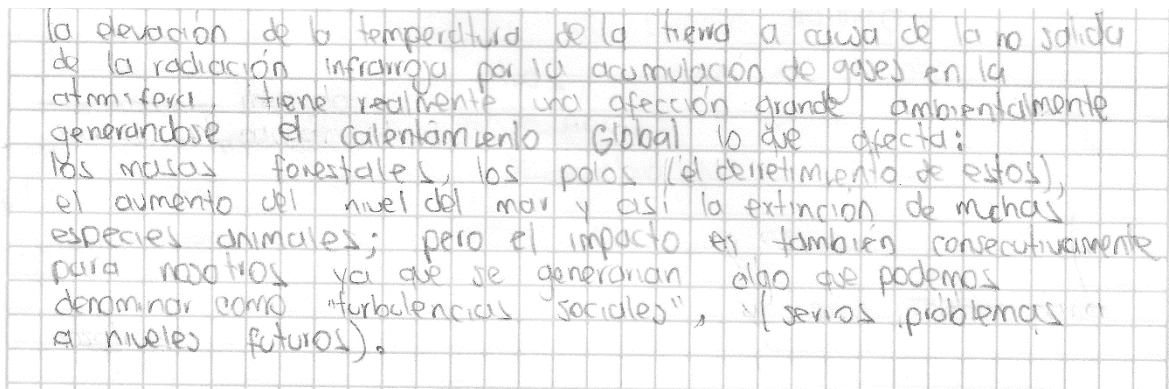 la elevación de la temperatura de la tierra a causa de la no salida
de la radiación infrarroja por la acumulacion de gases en la
atmosfera, tiene realmente una afección grande ambientalmente
generandose el calentamiento Global lo que afecta:
los masas forestales, los polos (el derretimiento de estos),
el aumento del nivel del mar y asi la extincion de muchas
especies animales; pero el impacto es también consecutivamente
para nosotros ya que se generarian algo que podemos
denominar como "turbulencias sociales", (serios problemas
a niveles futuros).